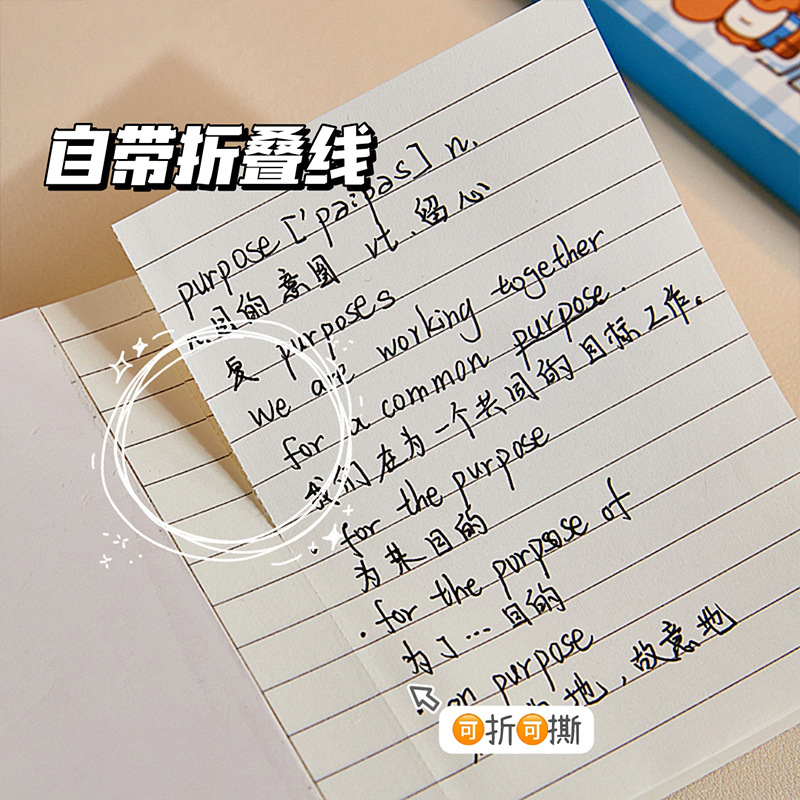 自带折叠线
purpose ['pə:pəs] n.
的意图 vt. 留心
复 purposes
we are working together
for a common purpose.
我们在为一个共同的目标工作。
. for the purpose
为共目的
. for the purpose of
为了…目的
on purpose
地,故意地
🉑折🉑撕